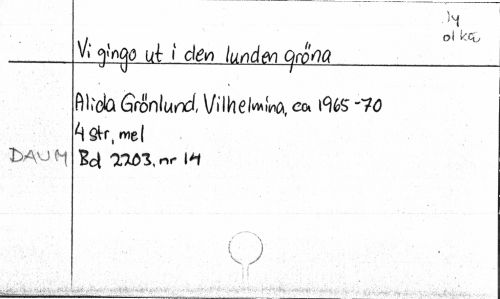 ly
olka
Vi gingo ut i den lunden gröna
Alida Grönlund, Vilhelmina, ca 1965-70
4 str, mel
DAUM Bd 2203, nr 14